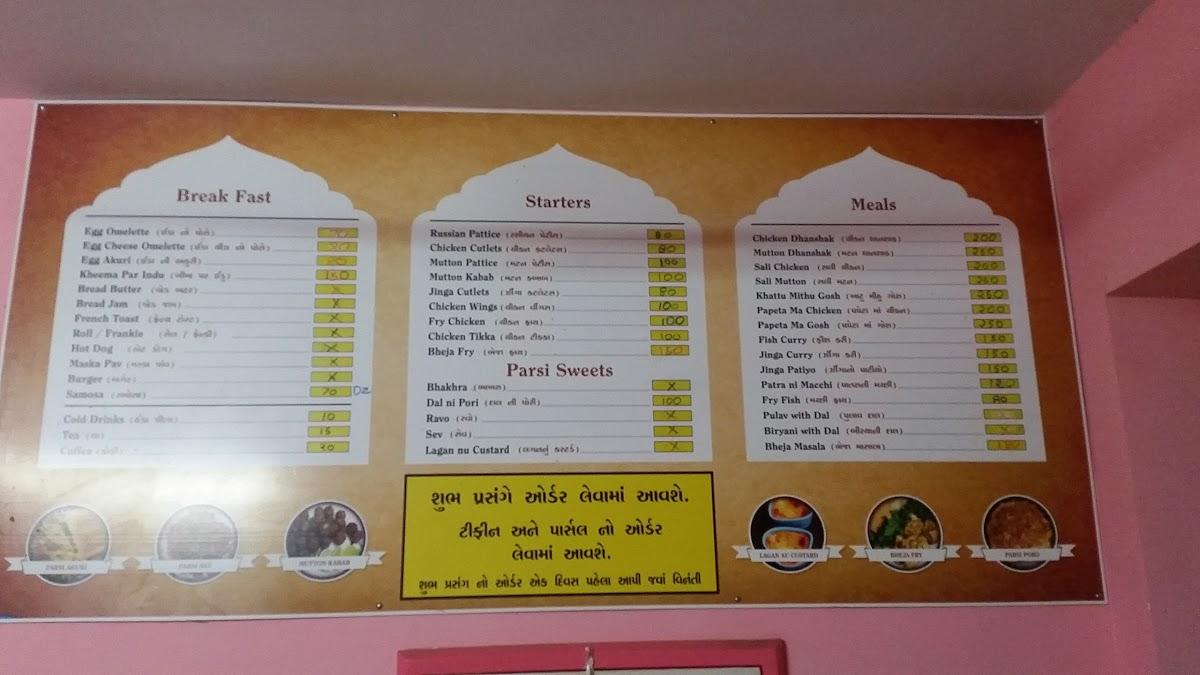 Break Fast
Egg Omelette (ઈંડા નો પોરો)
Egg Cheese Omelette (ઈંડા ચીઝ નો પોરો)
Egg Akuri (ઈંડા ની અકુરી)
Kheema Par Indu (ખીમા પર ઈંડુ) 150
Bread Butter (બ્રેડ બટર) X
Bread Jam (બ્રેડ જામ) X
French Toast (ફ્રેન્ચ ટોસ્ટ) X
Roll / Frankie (રોલ / ફ્રેન્કી) X
Hot Dog (હોટ ડોગ) X
Maska Pav (મસ્કા પાંવ) X
Burger (બર્ગર) X
Samosa (સમોસા) 70 DZ
Cold Drinks (ઠંડા પીણા) 10
Tea (ચા) 15
Coffee (કોફી) 20
Starters
Russian Pattice (રશીયન પેટીસ) 80
Chicken Cutlets (ચીકન કટલેટસ) 80
Mutton Pattice (મટન પેટીસ) 100
Mutton Kabab (મટન કબાબ) 100
Jinga Cutlets (ઝીંગા કટલેટસ) 80
Chicken Wings (ચીકન વીંગસ) 100
Fry Chicken (ચીકન ફ્રાય) 100
Chicken Tikka (ચીકન ટીક્કા) 100
Bheja Fry (ભેજા ફ્રાય) 150
Parsi Sweets
Bhakhra (ભાખરા) X
Dal ni Pori (દાલ ની પોરી) 100
Ravo (રવો) X
Sev (સેવ) X
Lagan nu Custard (લગનનું કસ્ટર્ડ) X
Meals
Chicken Dhanshak (ચીકન ધાનશાક) 200
Mutton Dhanshak (મટન ધાનશાક) 250
Sali Chicken (સલી ચીકન) 200
Sali Mutton (સલી મટન) 250
Khattu Mithu Gosh (ખાટુ મીઠુ ગોસ) 250
Papeta Ma Chicken (પપેટા માં ચીકન) 200
Papeta Ma Gosh (પપેટા માં ગોસ) 250
Fish Curry (ફીશ કરી) 150
Jinga Curry (ઝીંગા કરી) 150
Jinga Patiyo (ઝીંગાનો પાટીયો) 150
Patra ni Macchi (પાતરાની મચ્છી) 120
Fry Fish (મચ્છી ફ્રાય) 80
Pulav with Dal (પુલાવ દાલ)
Biryani with Dal (બીરયાની દાલ) X
Bheja Masala (ભેજા મસાલા)
શુભ પ્રસંગે ઓર્ડર લેવામાં આવશે.
ટીફીન અને પાર્સલ નો ઓર્ડર
લેવામાં આવશે.
શુભ પ્રસંગ નો ઓર્ડર એક દિવસ પહેલા આપી જવાં વિનંતી
PARSI AKURI
PARSI
MUTTON KABAB
LAGAN NU CUSTARD
BHEJA FRY
PARSI PORO